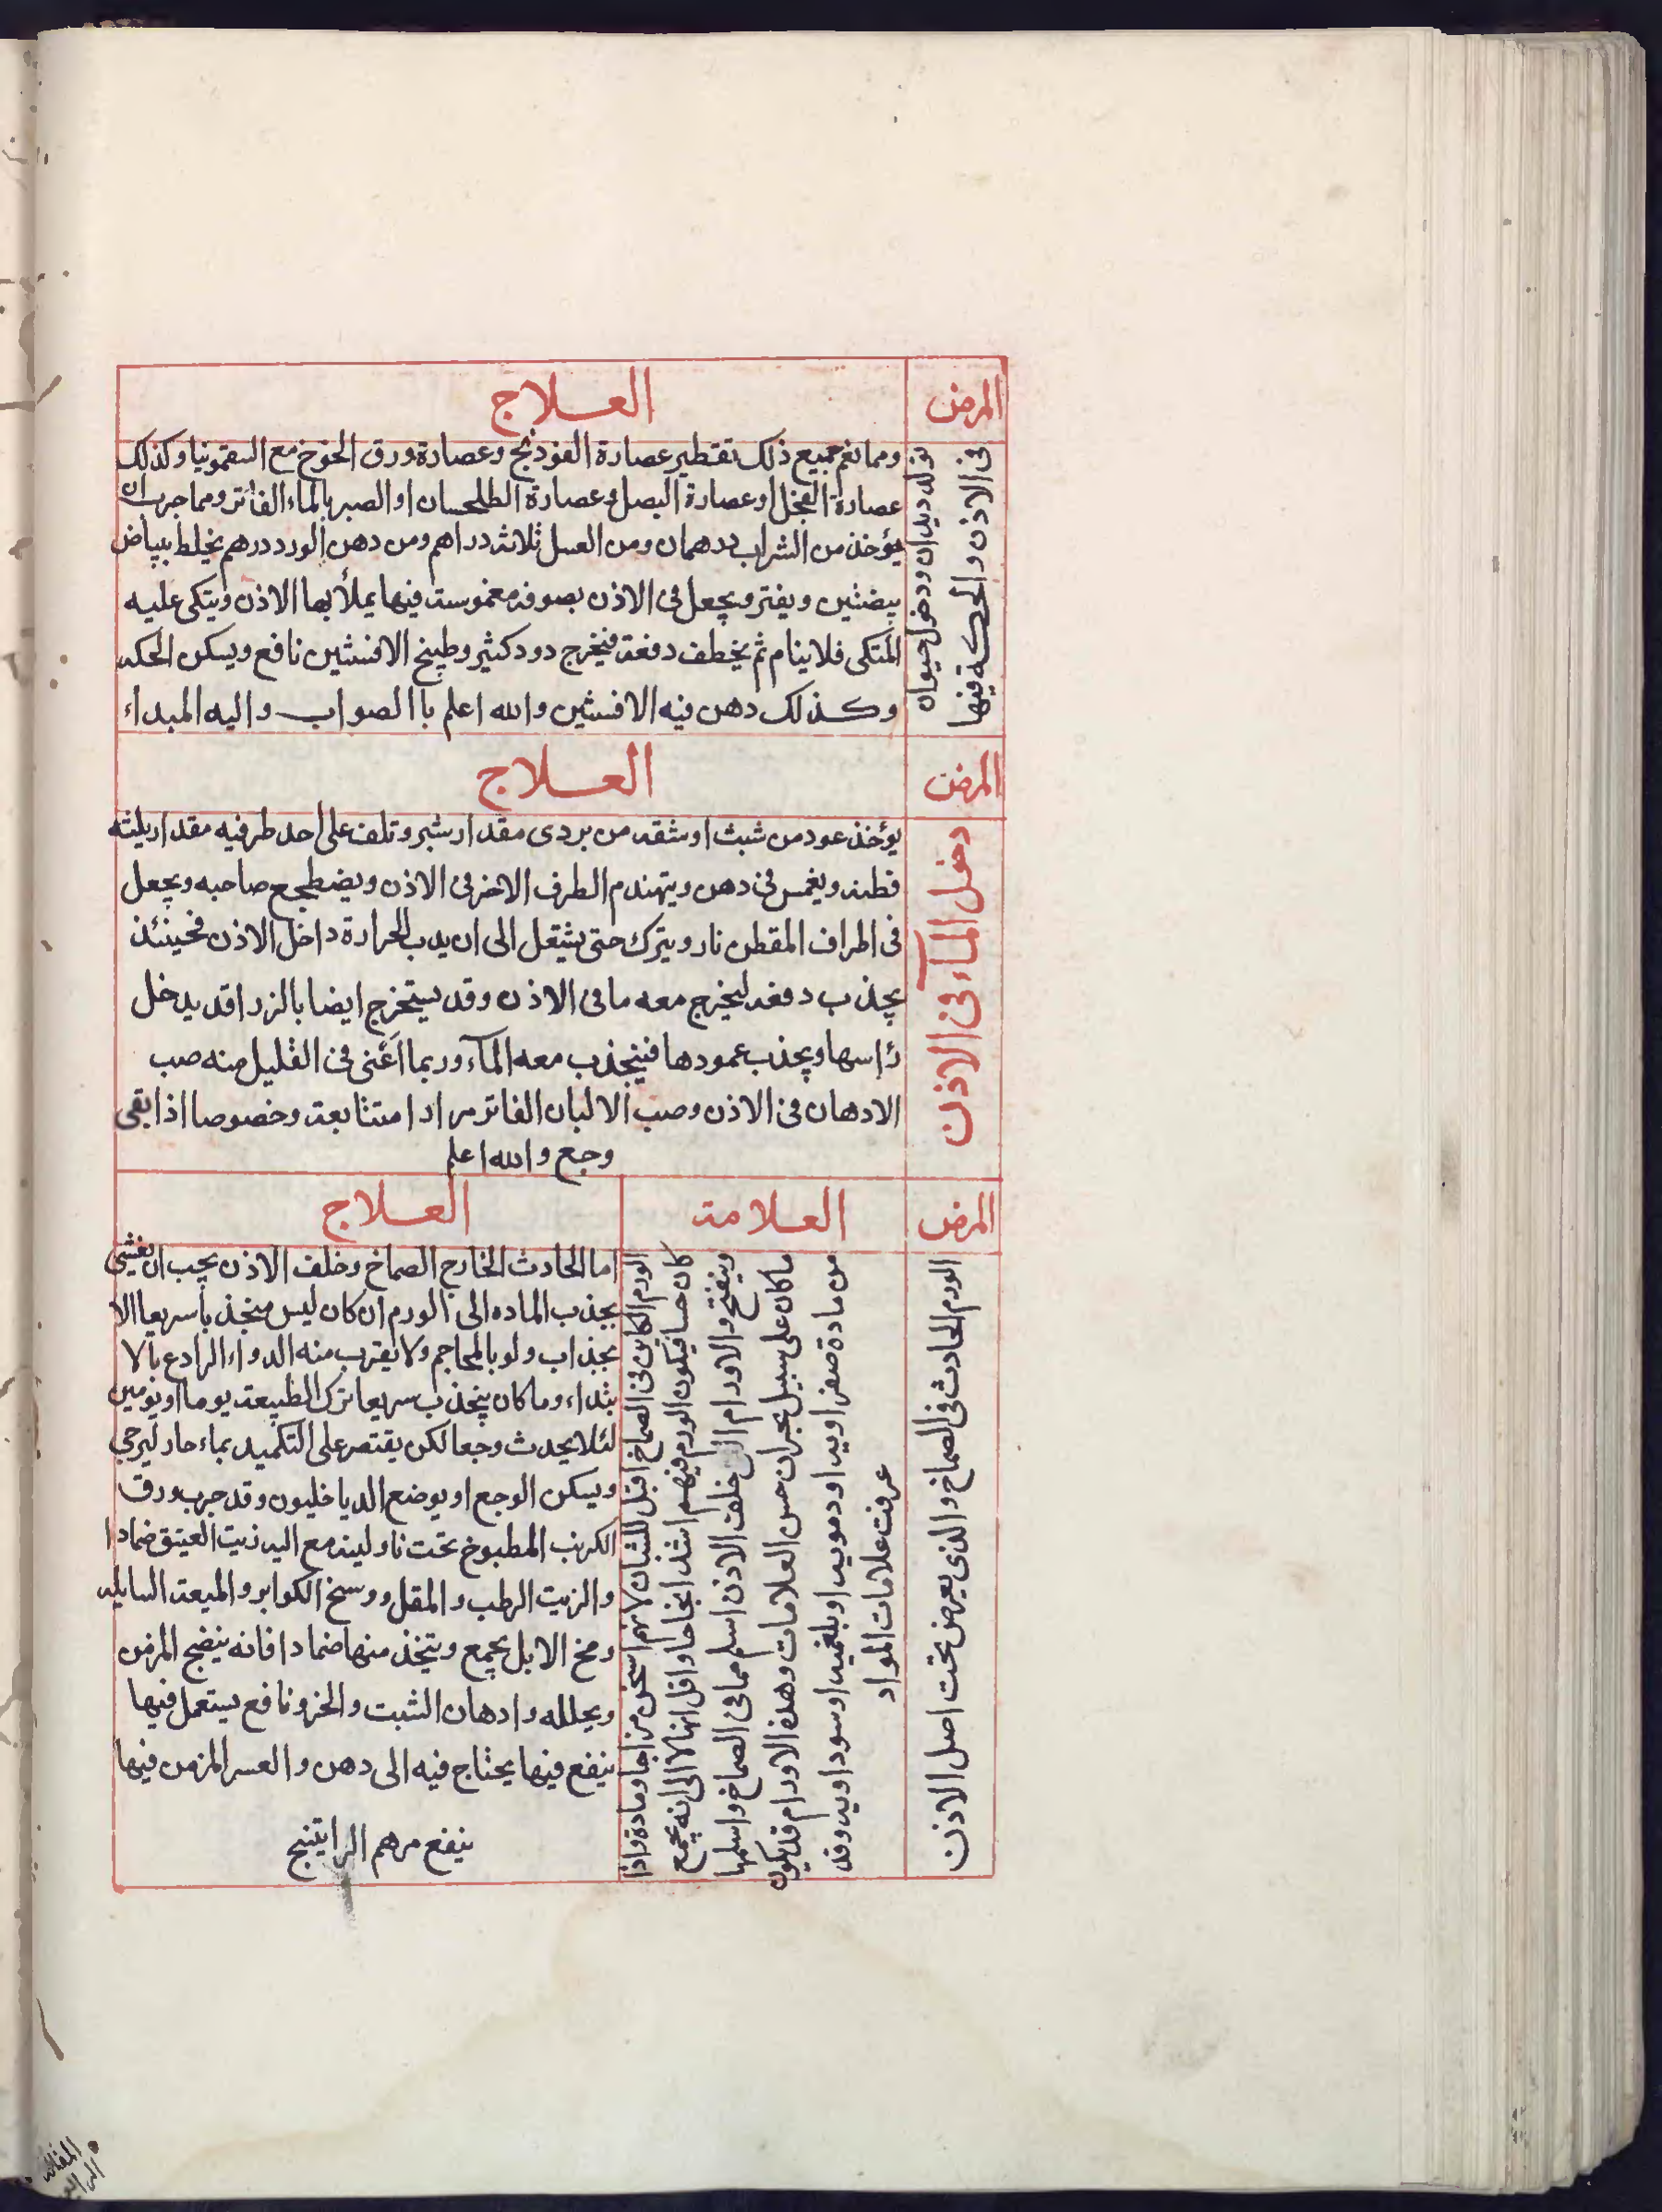 المرض
العلاج
تولد ديدان ودخول حيوان
فى الاذن والحكة فيها
ومما نفع جميع ذلك تقطير عصارة الفوذنج وعصارة ورق الخوخ مع السقمونيا وكذلك
عصارة الفجل او عصارة البصل وعصارة الطلحسان او الصبر بالماء الفاتر ومما جرب ان
يؤخذ من الشراب درهمان ومن العسل ثلاثة دراهم ومن دهن الورد درهم يخلط ببياض
بيضتين ويفتر ويجعل فى الاذن بصوفة مغموست فيها يملأ بها الاذن ويتكى عليه
المتكى فلا ينام ثم يخطف دفعة فيخرج دود كثير وطبيخ الافسنتين نافع ويسكن الحكه
وكذلك دهن فيه الافسنتين والله اعلم باالصواب واليه المبداء
المرض
العلاج
دخول المآء فى الاذن
يؤخذ عود من شبث او شقه من بردى مقدار شبر وتلف على احد طرفيه مقدار يلثه
قطنه ويغمس فى دهن ويتهندم الطرف الاخر فى الاذن ويضطجع صاحبه ويجعل
فى اطراف المقطن نار ويترك حتى يشتعل الى ان يدب الحرارة داخل الاذن فحينئذ
يجذب دفعه ليخرج معه ما فى الاذن وقد يستخرج ايضا بالزراقه يدخل
رأسها ويجذب عمودها فينجذب معه المآء وربما أغنى فى القليل منه صب
الادهان فى الاذن وصب الالبان الفاتر مرارا متتابعة وخصوصا اذا بقى
وجع والله اعلم
المرض
العلامة
العلاج
الورم الحادث فى الصماخ والذى يعرض تحت اصل الاذن
الورم الكاين فى الصماخ اقبل للشبان لانهم اسخن مزاجا ومادة واذا
كان حسا فيكون الورم فيهم اشد ايجاعا واقل انها لا الى انه يجمع
وينفتح والاورام التى خلف الاذن اسلم مما فى الصماخ واسلمها
ما كان على سبيل بحران حسن العلامات وهذه الاورام قد يكون
من مادة صفراويه او دمويه او بلغميه او سوداويه وقد
عرفت علامات المواد
اما الحادث الخارج الصماخ وخلف الاذن يجب ان يغشى
بجذب الماده الى الورم ان كان ليس منجذبا سريعا الا
بجذاب ولو بالمحاجم ولا يقرب منه الدواء الرادع بالا
بتداء وما كان ينجذب سريعا ترك الطبيعة يوما او يومين
لئلا يحدث وجعا لكن يقتصر على التكميد بماء حار ليرخى
ويسكن الوجع او يوضع الدياخليون وقد جرب ورق
الكرنب المطبوخ تحت نار لينه مع اليه زيت العيتق ضمادا
والزيت الرطب والمقل ووسخ الكواير والميعة السايله
ومخ الابل يجمع ويتخذ منها ضمادا فانه ينضج المزمن
ويحلله وادهان الشبت والخرو نافع يستعمل فيها
ينفع فيها يحتاج فيه الى دهن والعسر المزمن فيها
ينفع مرهم الراتينج